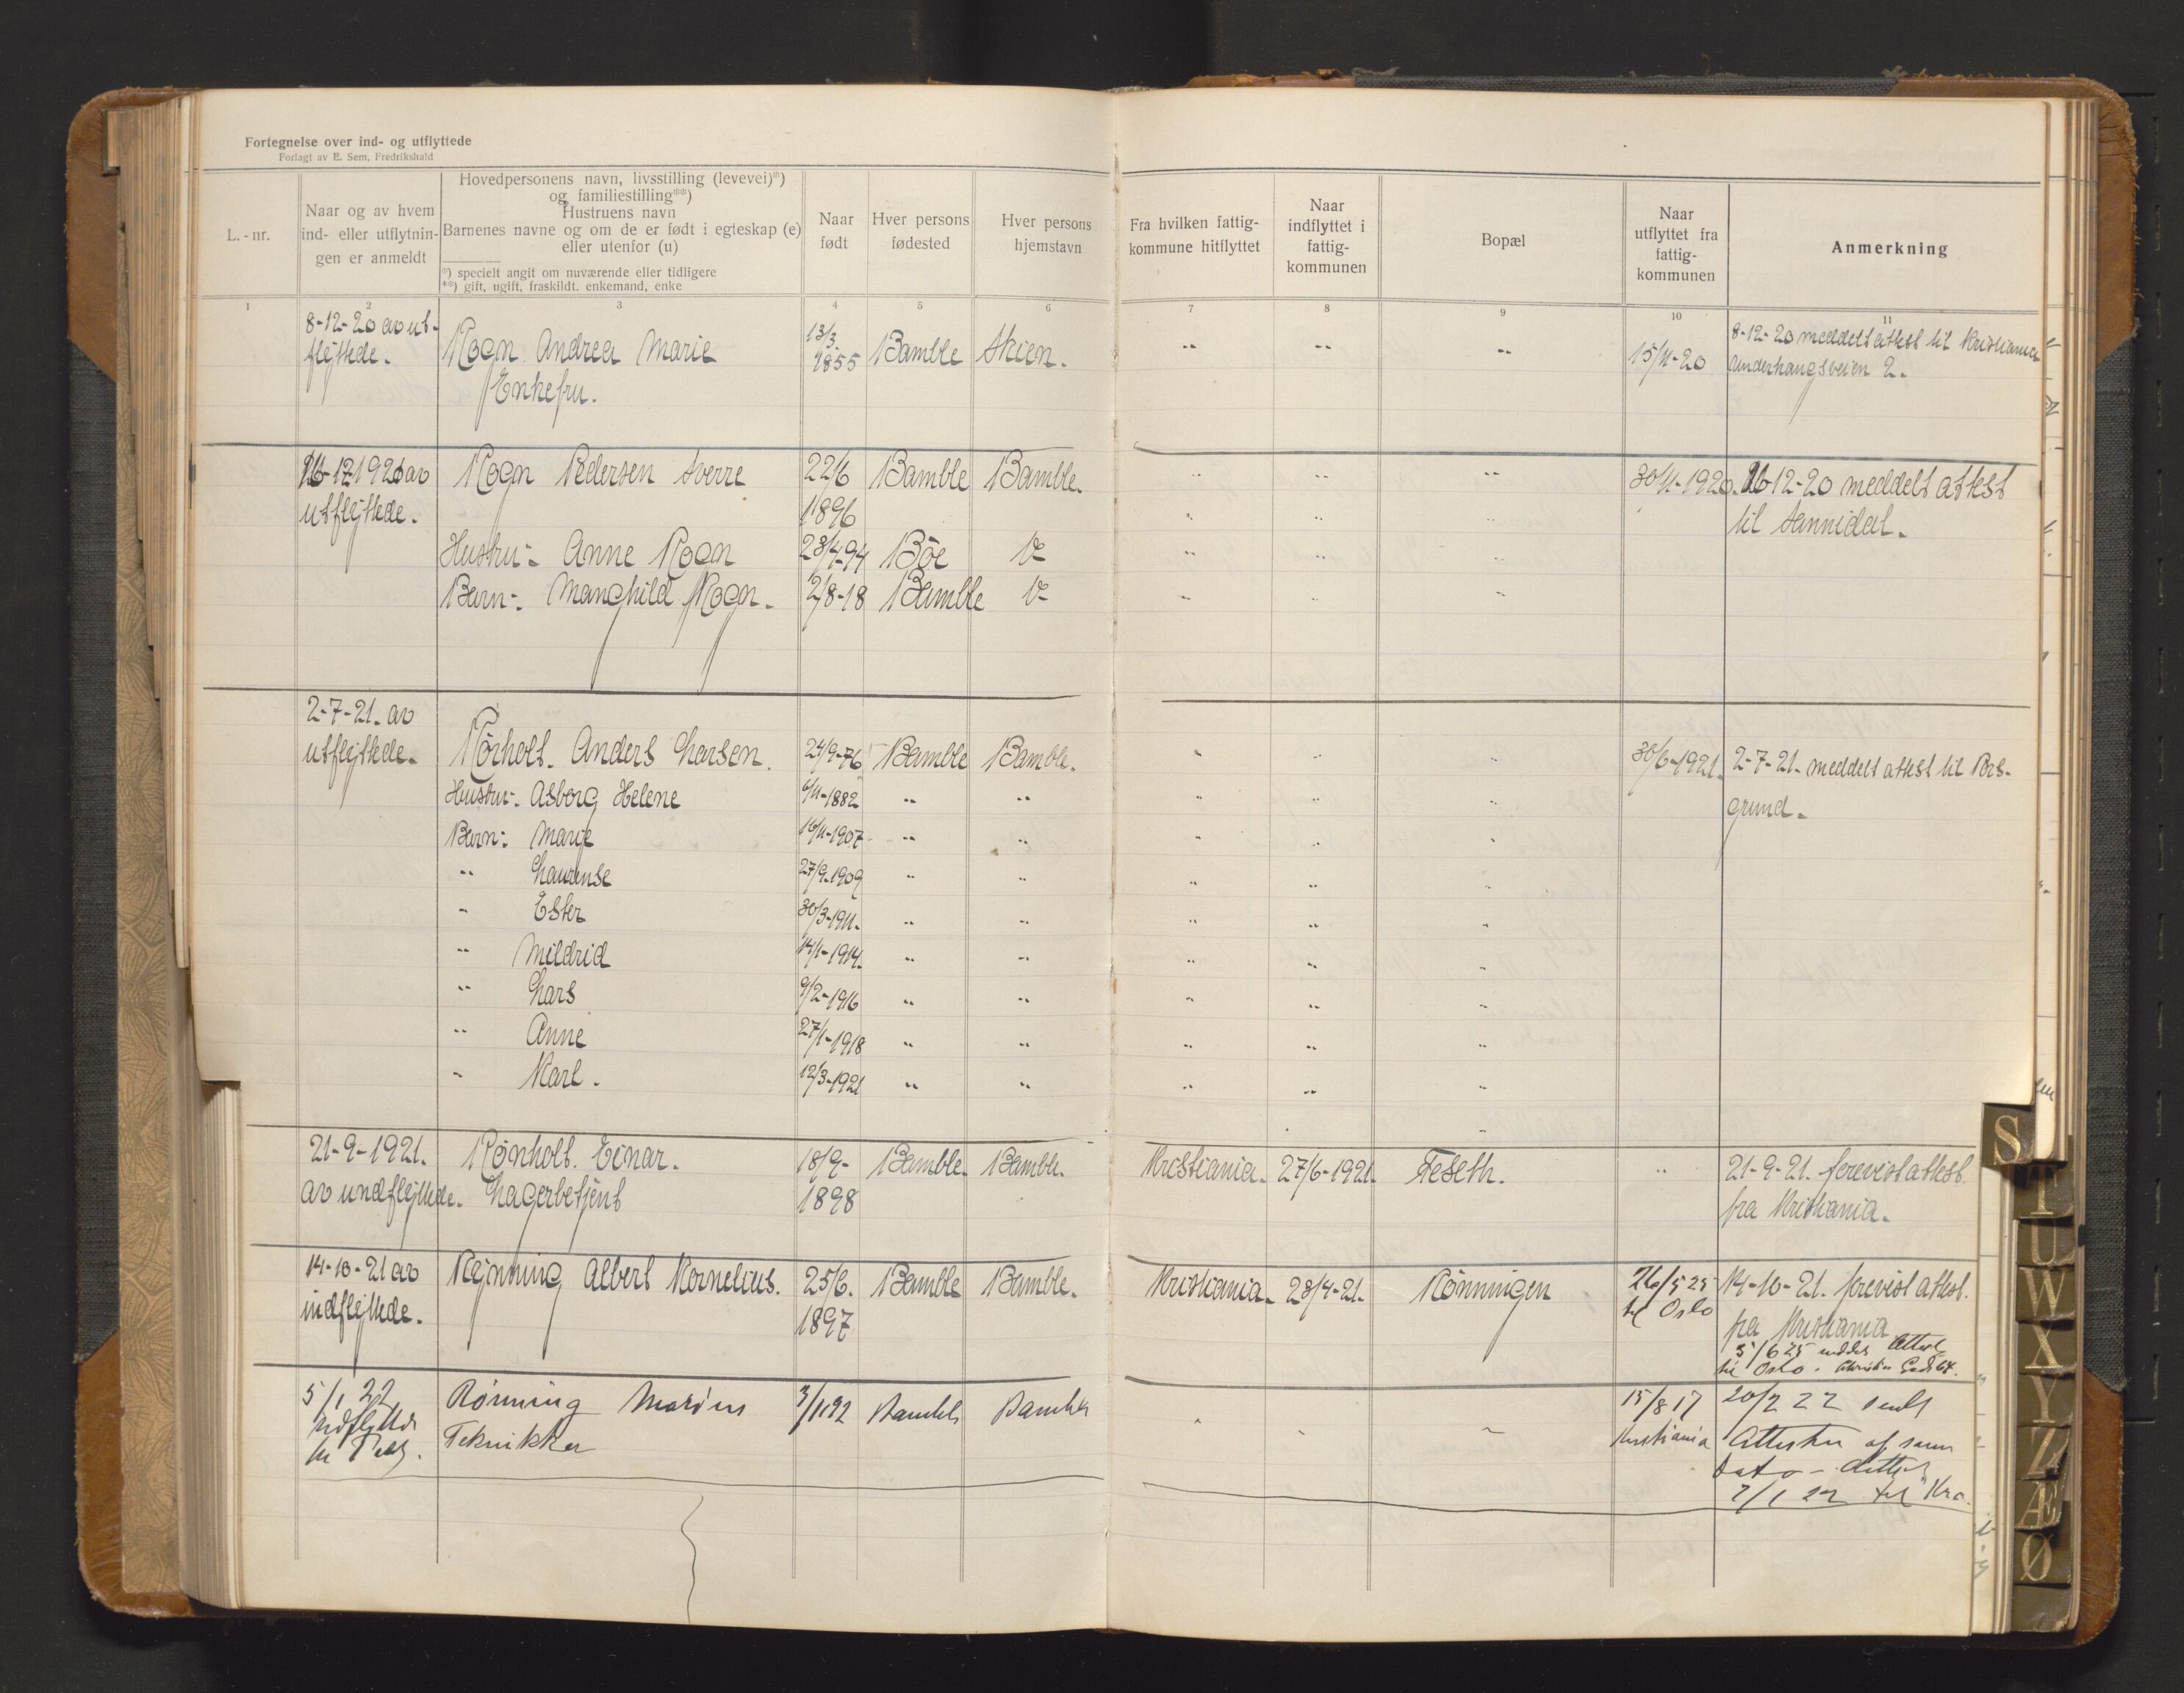 Fortegnelse over ind- og utflyttede
Forlagt av E. Sem, Fredrikshald
L.-nr.
Naar og av hvem
ind- eller utflytnin-
gen er anmeldt
Hovedpersonens navn, livsstilling (levevei)*)
og familiestilling**)
Hustruens navn
Barnenes navne og om de er født i egteskap (e)
eller utenfor (u)
*) specielt angit om nuværende eller tidligere
**) gift, ugift, fraskildt. enkemand, enke
Naar
født
Hver persons
fødested
Hver persons
hjemstavn
Fra hvilken fattig-
kommune hitflyttet
Naar
indflyttet i
fattig-
kommunen
Bopæl
Naar
utflyttet fra
fattig-
kommunen
Anmerkning
1 2 3 4 5 6 7 8 9 10 11
8-12-20 av ut-
flyttede.
Rogn Andrea Marie
Enkefru.
13/3
1855
Bamble
Skien.
15/11-20
8-12-20 meddelt attest til Kristiania
2.
av
utflyttede.
Rogn Pedersen Sverre
22/6
1896
Bamble
Bamble.
30/11-1920.
12-20 meddelt attest
til Sannidal.
Hustru:- Anne Rogn
23/4-94
Böe
Barn:- Rogn.
2/8-18
Bamble
2-7-21. av
utflyttede.
Rörholt. Anders Larsen.
24/9-76
Bamble
Bamble.
30/6-1921.
2-7-21. meddelt attest til Pors-
grund.
Hustru:- Asborg Helene
6/11-1882
" "
Barn:- Marie
16/11-1907
" "
" Laurense
27/9-1909
" "
" Ester
30/3-1911.
" "
" Mildrid
14/1-1914.
" "
" Lars
9/2-1916
" "
" Anne
27/1-1918
" "
" Karl.
12/3-1921
" "
21-9-1921.
av
Rønholt. Einar.
Lagerbetjent
18/9-
1898
Bamble.
Bamble.
Kristiania.
27/6-1921.
Feseth.
21-9-21. forevist attest.
fra Kristiania.
14-10-21 av
indflyttede.
Rynning Albert Kornelius.
25/6.
1897
Bamble
Bamble.
Kristiania.
28/4-21.
Rönningen
26/5 25
til Oslo
14-10-21. forevist attest.
fra Kristiania
5/6 25 meddel Attest
til Oslo.
5/1 22
Udflyttede
Rönning Marius
Tekniker
3/1 92
Bamble
Bamble
15/8 17
Kristiania
20/2 22 sendt
Attesten af samme
Dato - Attest
7/1 22 til Kra.
S
T
U
W
X
Y
Z
Æ
Ø